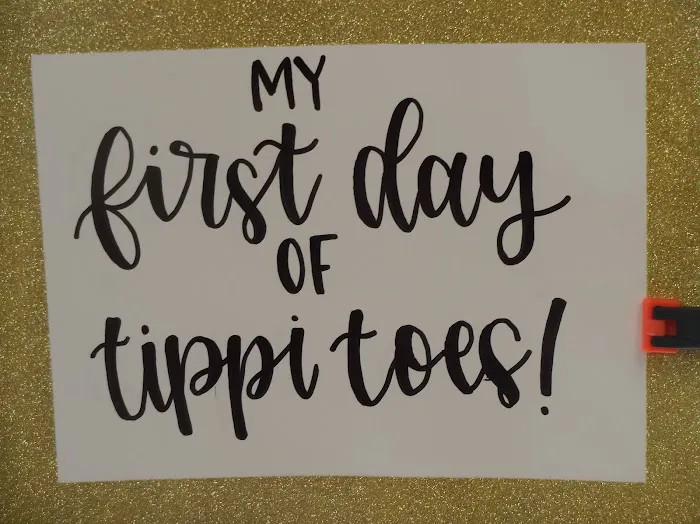 MY
first day
OF
tippi toes!